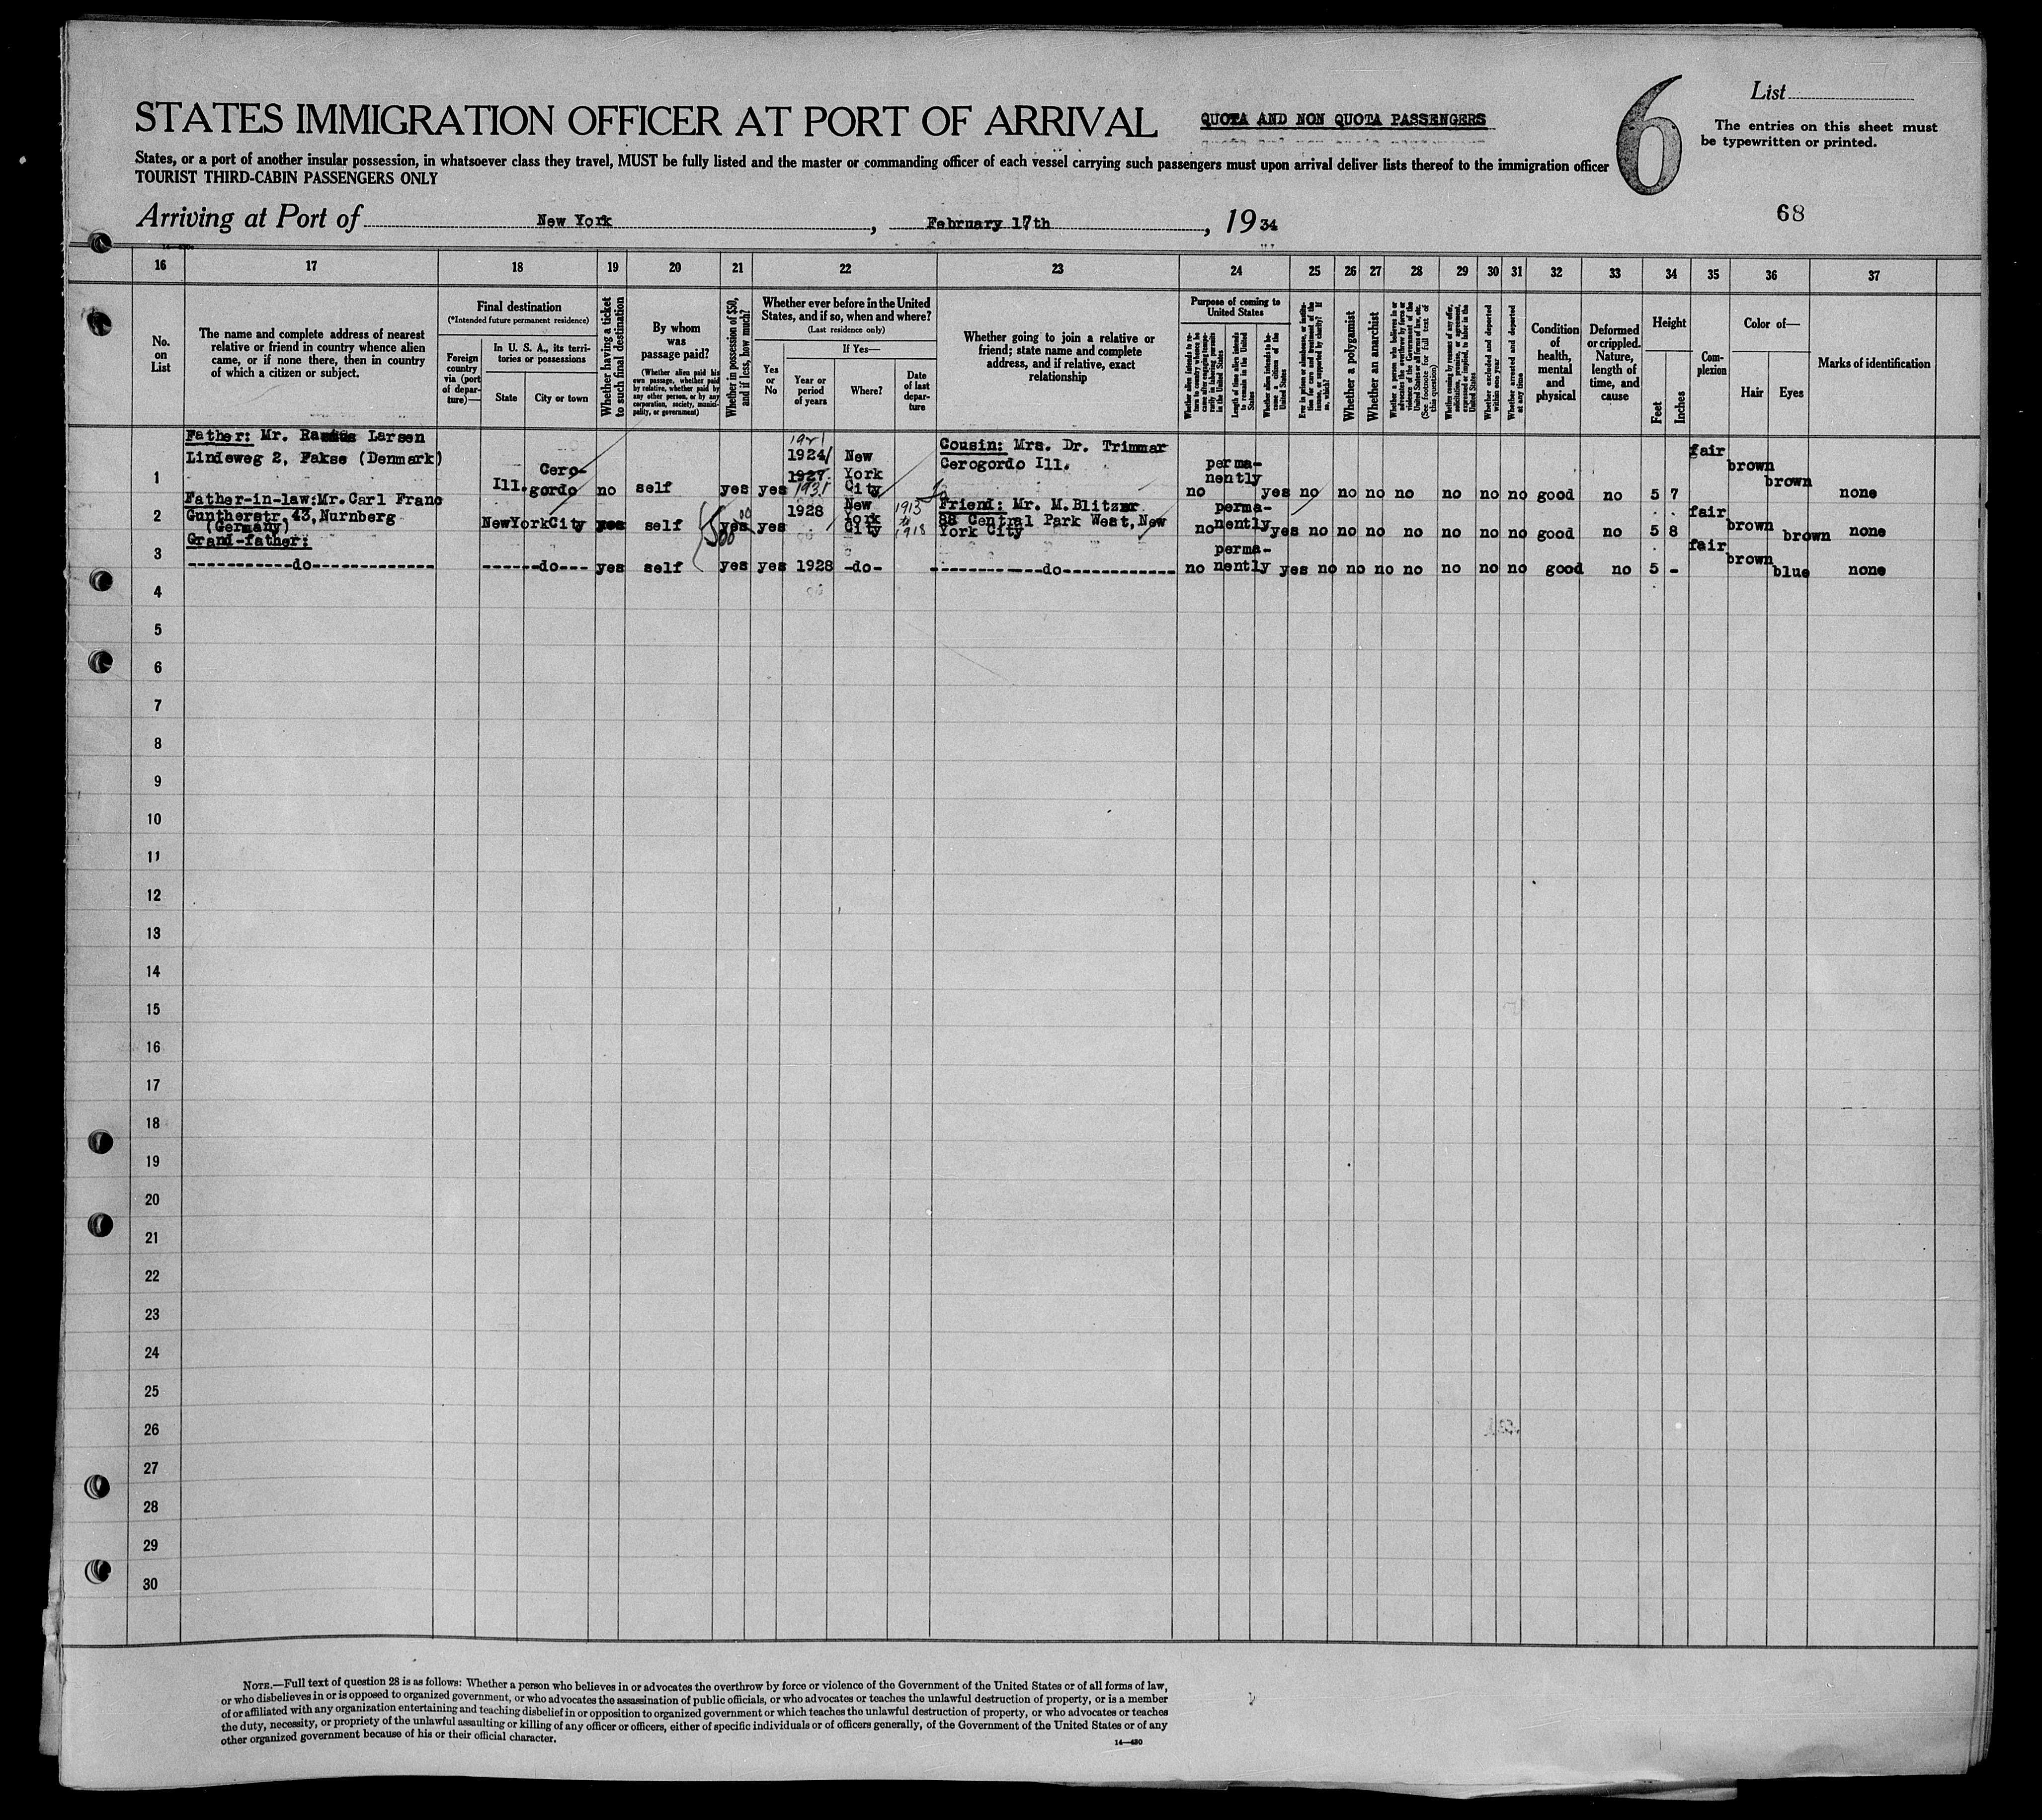 STATES IMMIGRATION OFFICER AT PORT OF ARRIVAL
QUOTA AND NON QUOTA PASSENGERS
6
List
The entries on this sheet must
be typewritten or printed.
States, or a port of another insular possession, in whatsoever class they travel, MUST be fully listed and the master or commanding officer of each vessel carrying such passengers must upon arrival deliver lists thereof to the immigration officer
TOURIST THIRD-CABIN PASSENGERS ONLY
68
Arriving at Port of New York, February 17th, 1934
16 17 18 19 20 21 22 23 24 25 26 27 28 29 30 31 32 33 34 35 36 37
No.
on
List
The name and complete address of nearest
relative or friend in country whence alien
came, or if none there, then in country
of which a citizen or subject.
Final destination
(*Intended future permanent residence)
Foreign
country
via (port
of depar-
ture)—
In U. S. A., its terri-
tories or possessions
State
City or town
Whether having a ticket
to such final destination
By whom
was
passage paid?
(Whether alien paid his
own passage, whether paid
by relative, whether paid by
any other person, or by any
corporation, society, munici-
pality, or government)
Whether in possession of $50,
and if less, how much?
Whether ever before in the United
States, and if so, when and where?
(Last residence only)
Yes
or
No
If Yes—
Year or
period
of years
Where?
Date
of last
depar-
ture
Whether going to join a relative or
friend; state name and complete
address, and if relative, exact
relationship
Purpose of coming to
United States
Whether alien intends to re-
turn to country whence he
came after engaging tempo-
rarily in laboring pursuits
in the United States
Length of time alien intends
to remain in the United
States
Whether alien intends to be-
come a citizen of the
United States
Ever in prison or almshouse, or institu-
tion for care and treatment of the
insane, or supported by charity? If
so, which?
Whether a polygamist
Whether an anarchist
Whether a person who believes in or
advocates the overthrow by force or
violence of the Government of the
United States or all forms of law, etc.
(See footnote for full text of
this question)
Whether coming by reason of any offer,
solicitation, promise, or agreement,
expressed or implied, to labor in the
United States
Whether excluded and deported
within one year
Whether arrested and deported
at any time
Condition
of
health,
mental
and
physical
Deformed
or crippled.
Nature,
length of
time, and
cause
Height
Feet
Inches
Com-
plexion
Color of—
Hair
Eyes
Marks of identification
1
Father: Mr. Rasmus Larsen
Lindeweg 2, Fakse (Denmark)
Ill.
Cero-
gordo
no self yes yes
1921
1924/
1927.
1931
New
York
City
Cousin: Mrs. Dr. Trimmar
Cerogordo Ill.
no
perma-
nently
yes no no no no no no no good no 5 7 fair brown brown none
2
Father-in-law: Mr. Carl Franc
Guntherstr. 43, Nurnberg
(Germany)
New York City yes self
500
00
yes yes 1928
New
York
City
1913
to
1918
Friend: Mr. M. Blitzer
88 Central Park West, New
York City
no
perma-
nently
yes no no no no no no no good no 5 8 fair brown brown none
3
Grand-father:
-----------do-------------
------do--- yes self yes yes 1928 -do-
-----------do------------
no
perma-
nently
yes no no no no no no no good no 5 - fair brown blue none
4
5
6
7
8
9
10
11
12
13
14
15
16
17
18
19
20
21
22
23
24
25
26
27
28
29
30
NOTE.—Full text of question 28 is as follows: Whether a person who believes in or advocates the overthrow by force or violence of the Government of the United States or of all forms of law,
or who disbelieves in or is opposed to organized government, or who advocates the assassination of public officials, or who advocates or teaches the unlawful destruction of property, or is a member
of or affiliated with any organization entertaining and teaching disbelief in or opposition to organized government or which teaches the unlawful destruction of property, or who advocates or teaches
the duty, necessity, or propriety of the unlawful assaulting or killing of any officer or officers, either of specific individuals or of officers generally, of the Government of the United States or of any
other organized government because of his or their official character.
14—430